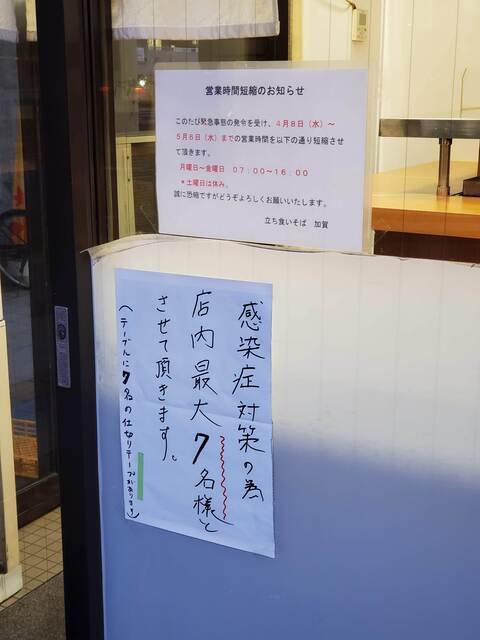 営業時間短縮のお知らせ
このたび緊急事態の発令を受け、4月8日（水）～
5月6日（水）までの営業時間を以下の通り短縮させ
て頂きます。
月曜日～金曜日　07：00～16：00
＊土曜日は休み。
誠に恐縮ですがどうぞよろしくお願いいたします。
立ち食いそば　加賀
感染症対策の為
店内最大7名様と
させて頂きます。
（テーブルに7名の仕切りテープがあります）